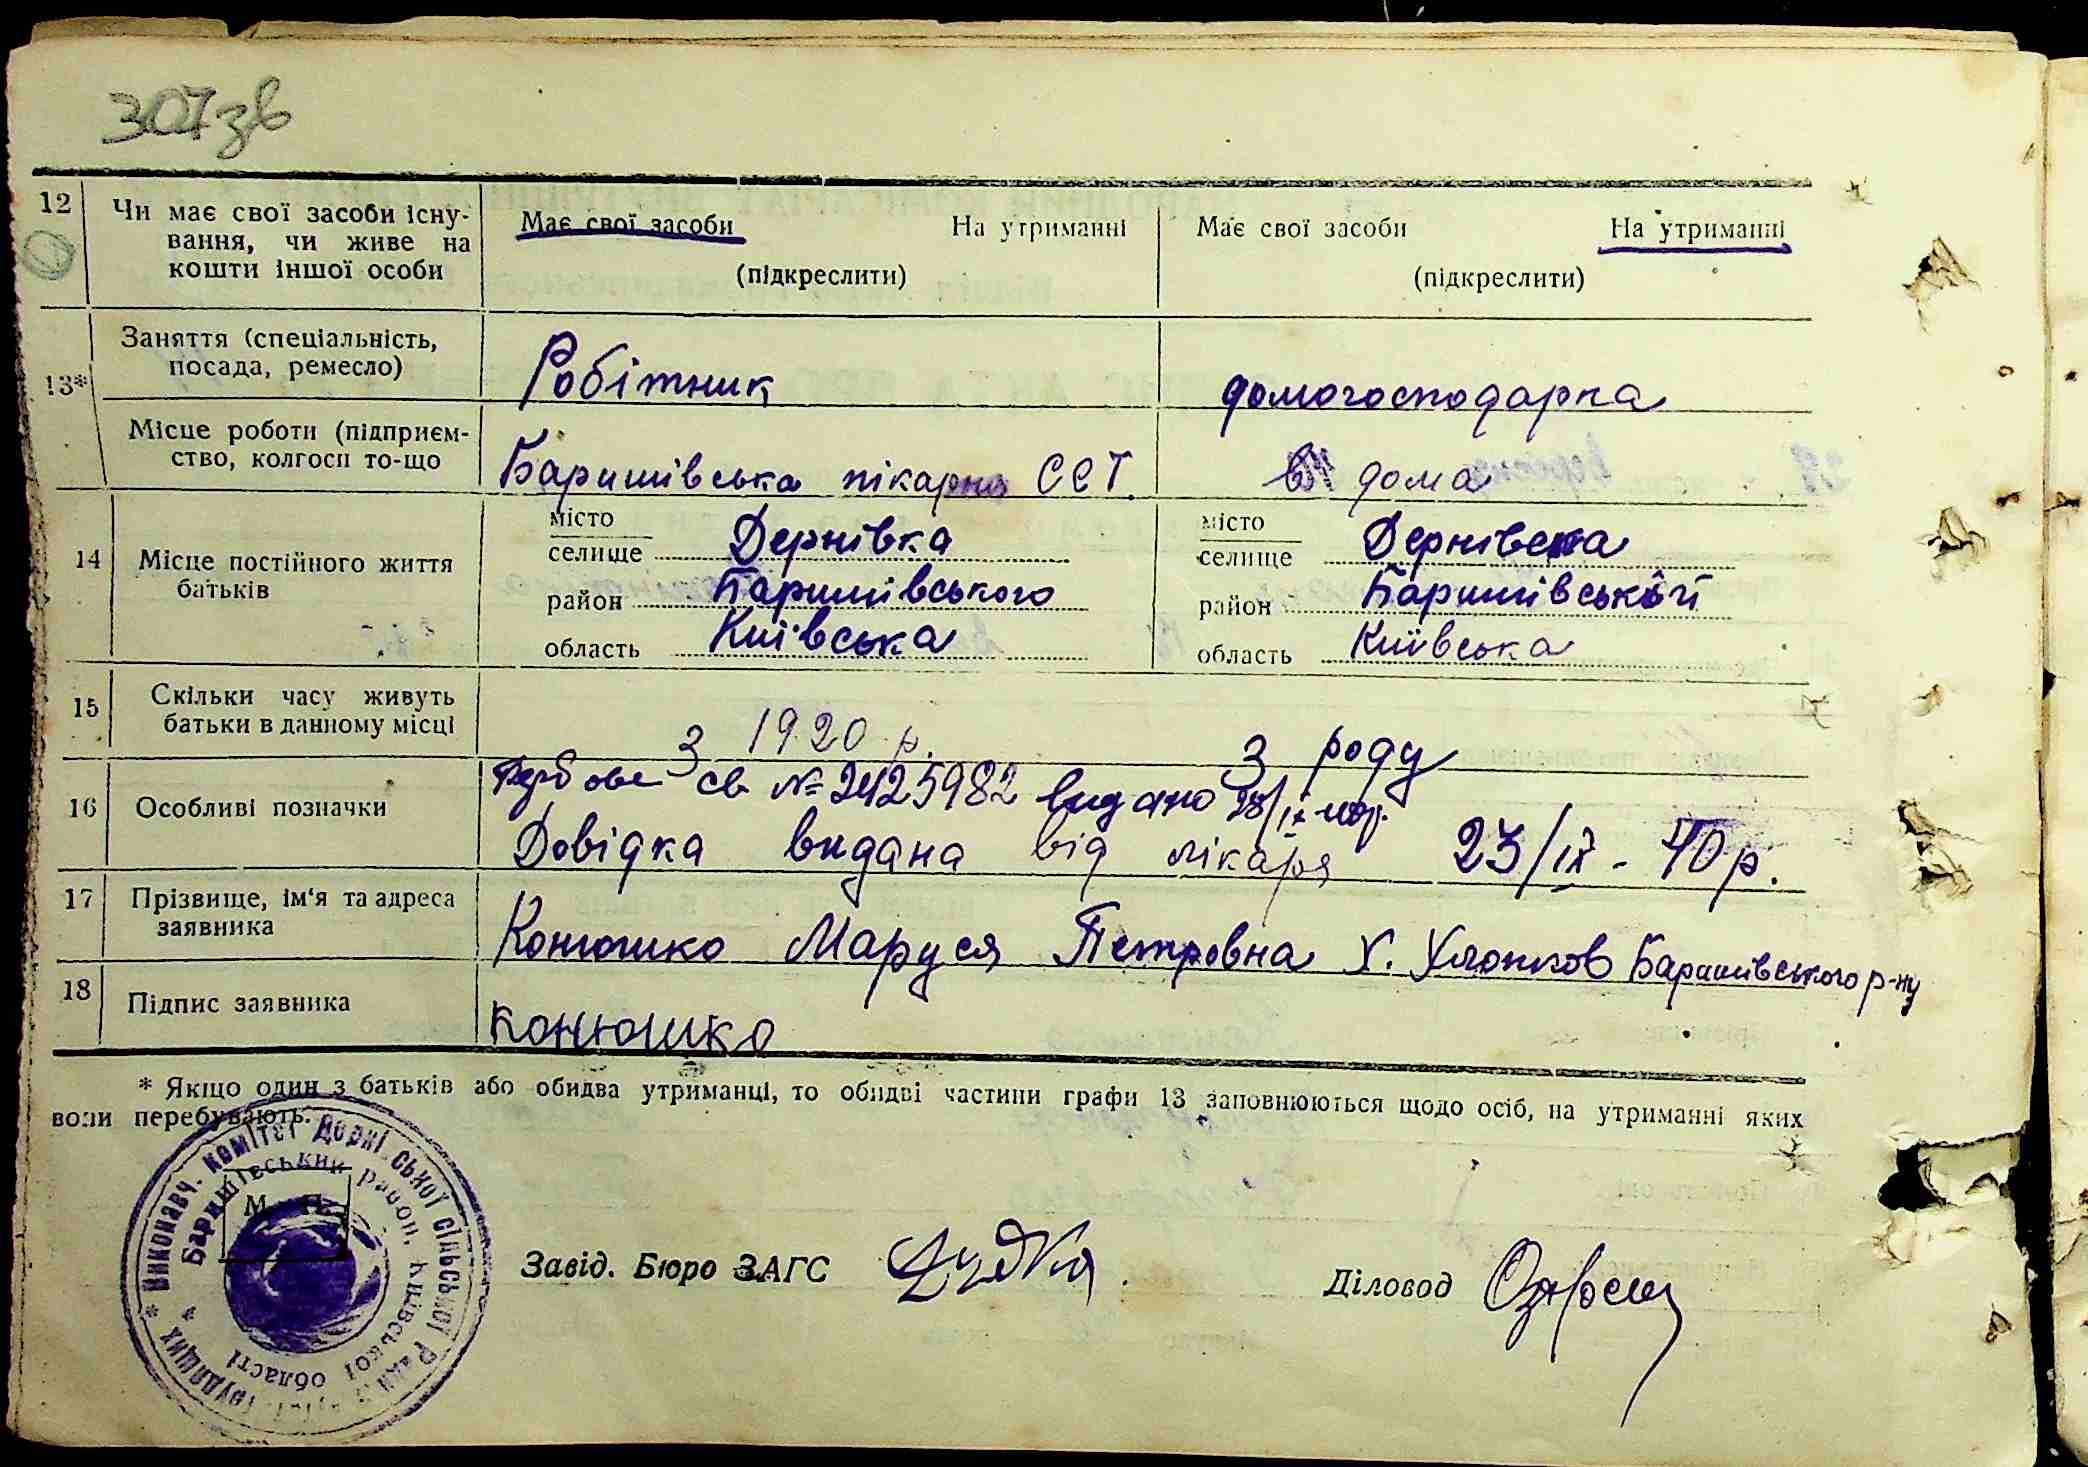 307зв
12 Чи має свої засоби існу-
вання, чи живе на
кошти іншої особи
Має свої засоби На утриманні Має свої засоби На утриманні
(підкреслити) (підкреслити)
13* Заняття (спеціальність,
посада, ремесло)
Робітник домогосподарка
Місце роботи (підприєм-
ство, колгосп то-що
Баришівська пікарня ССТ. дома
14 Місце постійного життя
батьків
місто місто
селище Дернівка селище Дернівска
район Баришівського район Баришівській
область Київська область Київська
15 Скільки часу живуть
батьки в данному місці
З 1920 р. З роду
16 Особливі позначки
Гербове св № 2425982 видано 28/ІХ-40р.
Довідка видана від лікаря 23/ІХ-40р.
17 Прізвище, ім'я та адреса
заявника
Конюшко Маруся Петровна х. Хлопков Баришівського р-ну
18 Підпис заявника
Конюшко
* Якщо один з батьків або обидва утриманці, то обидві частини графи 13 заповнюються щодо осіб, на утриманні яких
вони перебувають.
* Виконавч. комітет Дерні ської сільської Ради трудящих
Баришівський район, Київської області *
М. П.
Завід. Бюро ЗАГС
Діловод